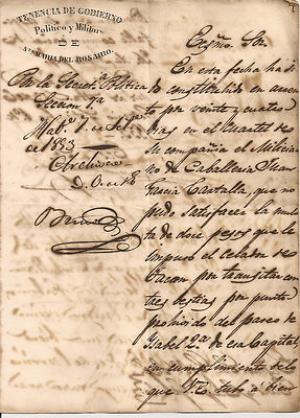 TENENCIA DE GOBIERNO
Politico y Militar
DE
STA MARIA DEL ROSARIO.
Por la Secretª Politica
Seccion 1ª
Habª 7 de
de 1853
Archivese
Exmo. Sor.
En esta fecha ha si
do constituido en arres
to por veinte y cuatro
horas en el cuartel de
su compañia el Milicia
no de Caballeria Juan
Garcia Cantalla, que no
pudo satisfacer la mul
ta de doce pesos que le
impuso el celador de
por transitar con
tres bestias por punto
prohivido del paseo de
Isabel 2ª de esa Capital,
en cumplimiento de lo
que V.E. tubo á bien